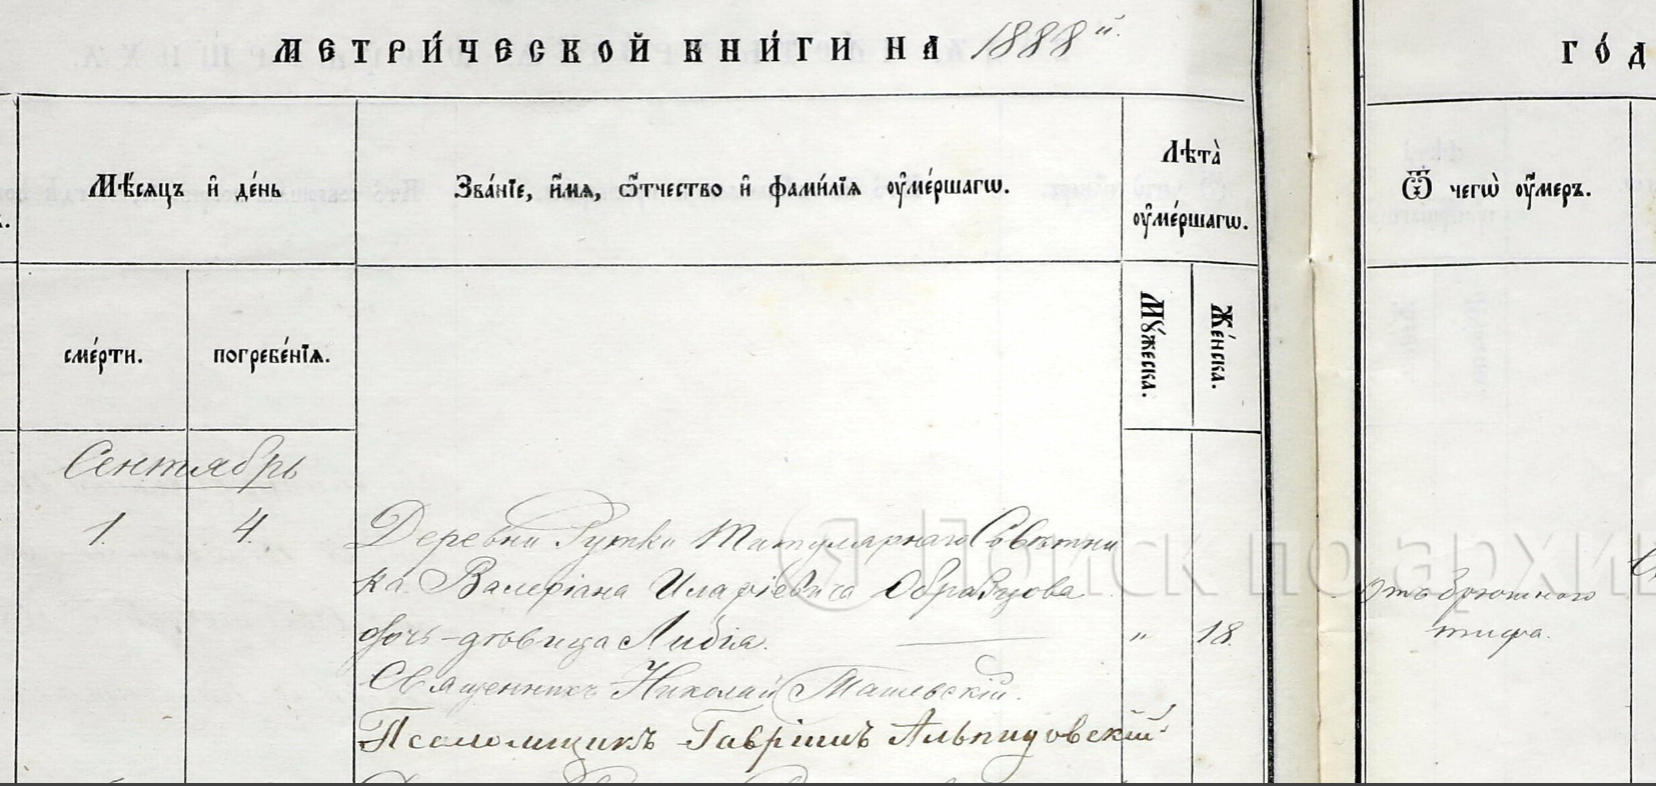 МЕТРИ́ЧЕСКОЙ КНИ́ГИ НА 1888й.
ГО́Д
Мѣ́сяцъ и҆ де́нь
Зва́нїе, и҆́мѧ, ѻ҆́тчество и҆ фами́лїѧ оу҆ме́ршагѡ.
Лѣта̀
оу҆ме́ршагѡ.
Ѿ чегѡ̀ оу҆́меръ.
сме́рти.
погребе́нїѧ.
Мꙋ́жеска.
Же́нска.
Сентябрь
1. 4. Деревни Рутки Титулярнаго Совѣтни
ка Валеріана Иларіевича Образцова
дочь-дѣвица Лидія. " 18.
Отъ брюшного
тифа.
Священникъ Николай
Псаломщикъ Гавріилъ Альпидовскій
Поиск по архи